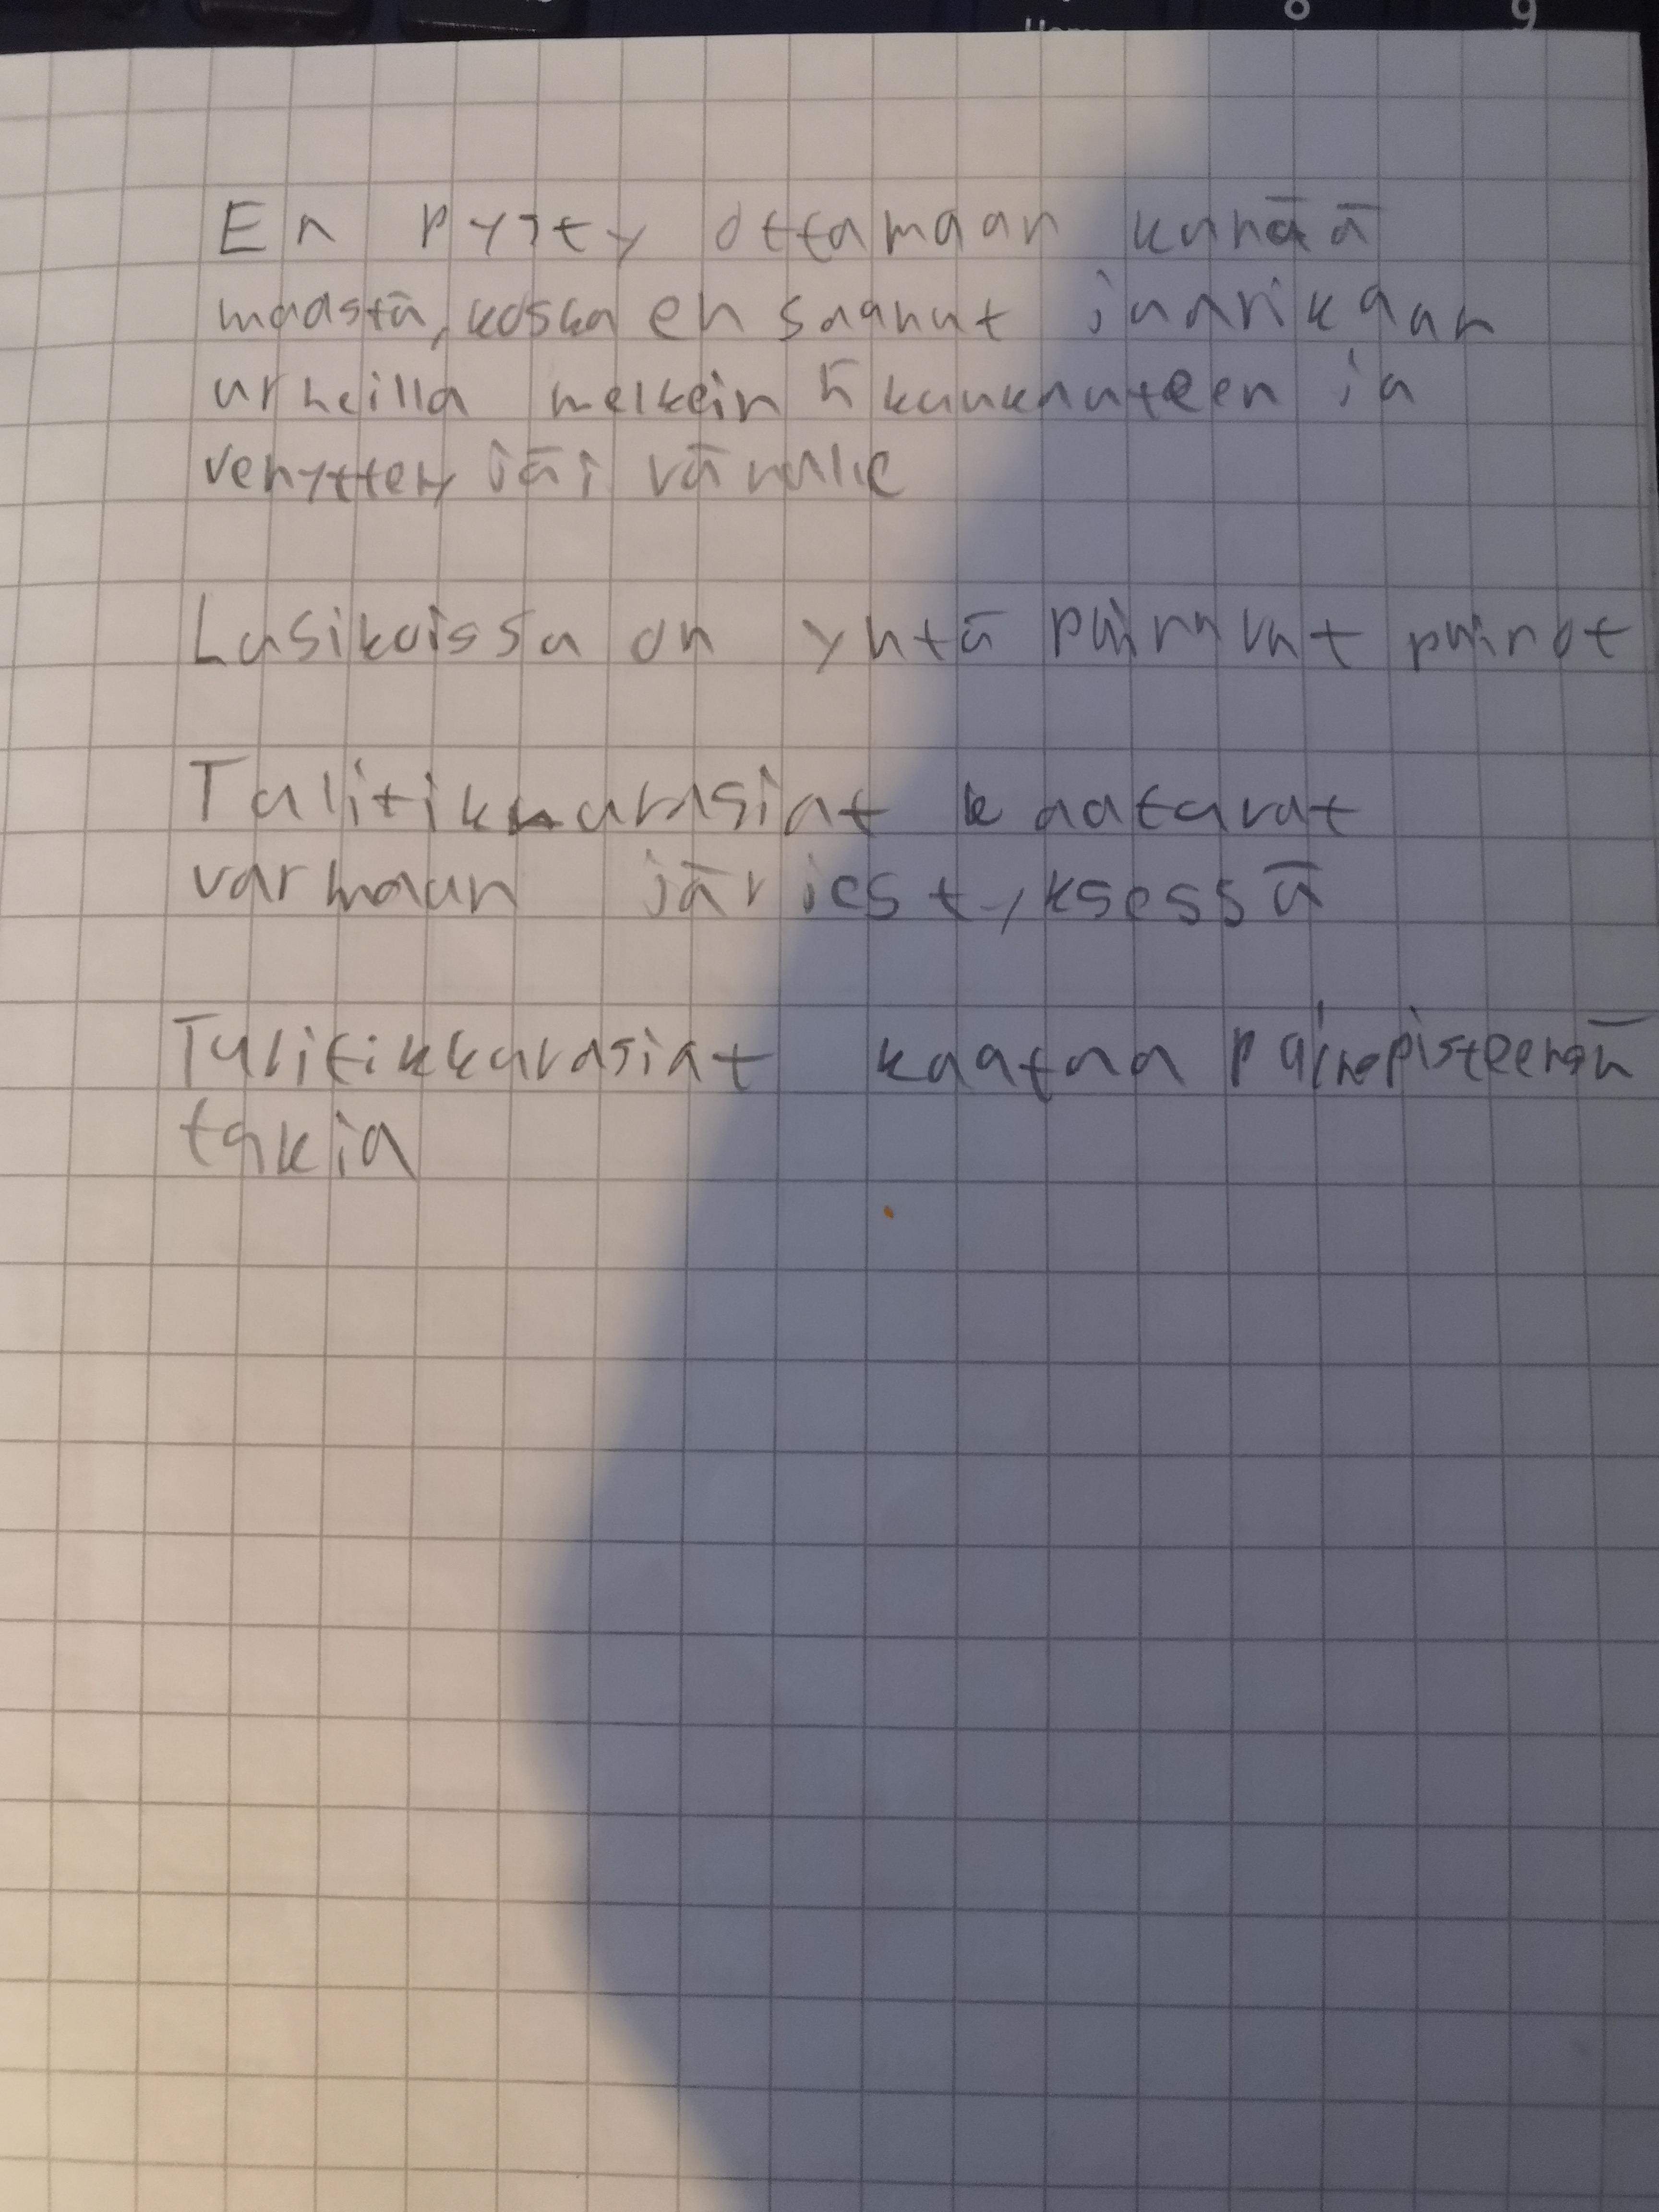 En pysty ottamaan kynää
maasta, koska en saanut juurikaan
urheilla melkein 5 kuukauteen ja
venyttely jäi vämälle
Lusikoissa on yhtä painavat painot
Tulitikkurasiat kaatuvat
varmaan järjestyksessä
Tulitikkurasiat kaatuu painopisteensä
takia